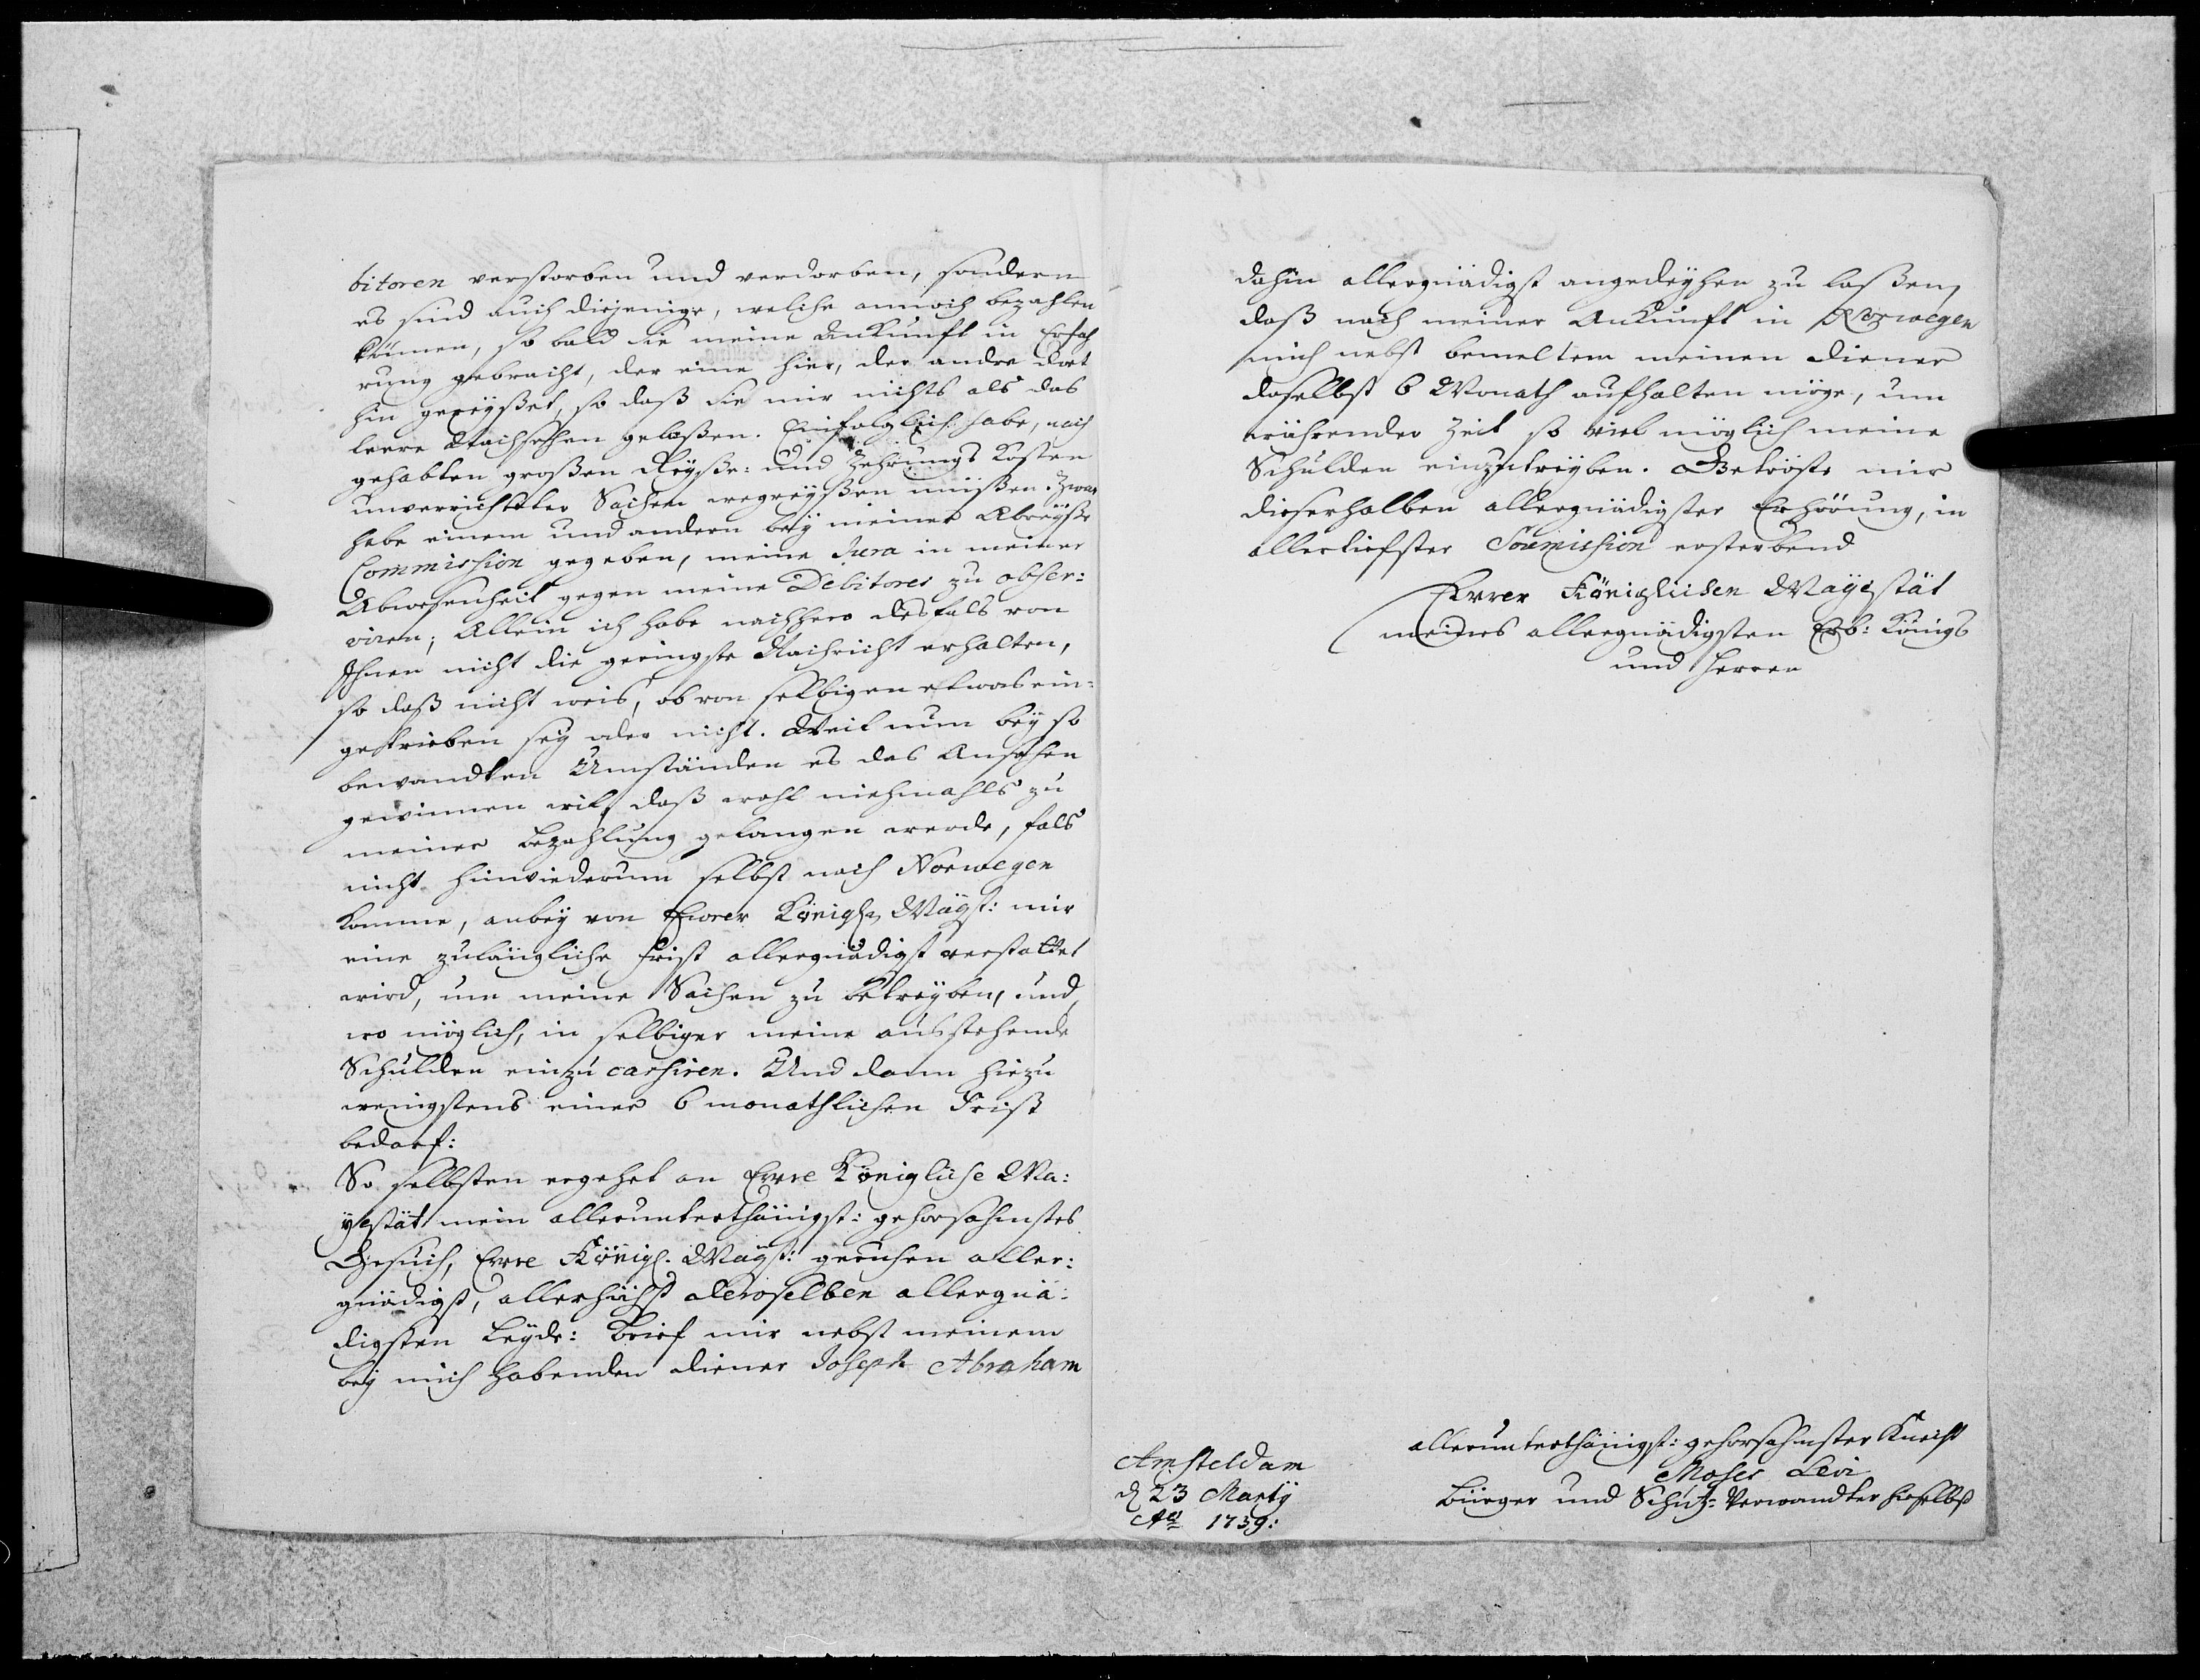 bitoren verstorben und verdorben, sondern
es sind auch diejenige, welche annoch bezahlen
können, so bald sie meine Ankunft in Erfah
rung gebracht, der eine hier, der andre dort
hin gereyßet, so daß sie mir nichts als das
leere Nachsehen gelaßen. Einfolglich habe, nach
gehabten großen Reyße- und Zehrungs Kosten
unverrichteter Sachen wegreyßen müßen. Zwar
habe einem und andern bey meiner Abreyße
Commission gegeben, meine Jura in meiner
Abwesenheit gegen meine Debitores zu obser-
viren; Allein ich habe nachhero desfals von
Ihnen nicht die geringste Nachricht erhalten,
so daß nicht weis, ob von selbigen etwas ein-
getrieben sey oder nicht. Weil nun bey so
bewandten Umständen es das Ansehen
gewinnen wil, daß wohl niehmahls zu
meiner Bezahlung gelangen werde, fals
nicht hinwiederum selbst nach Norwegen
komme, anbey von Ewrer Königl. Mayst: mir
eine zulängliche Frist allergnädigst verstattet
wird, um meine Sachen zu betreyben, und,
wo möglich, in selbiger meine ausstehende
Schulden einzu cassiren. Und dann hiezu
wenigstens einer 6 monathlichen Frist
bedarf:
So selbsten ergehet an Ewre Königliche Ma-
yestät mein allerunterthänigst: gehorsahmstes
Gesuch, Ewre Königl. Mayst: geruhen aller-
gnädigst, allerhöchst Deroselben allergnä-
digsten Leyde: Brief mir nebst meinem
bey mich habenden Diener Joseph Abraham
dahin allergnädigst angedeyhen zu laßen,
daß nach meiner Ankunft in Norwegen
mich nebst bemeltem meinen Diener
daselbst 6 Monath aufhalten möge, um
währender Zeit so viel möglich meine
Schulden einzutreyben. Getröste mir
dieserhalben allergnädigster Erhörung, in
allertiefster Soumission ersterbend
Ewrer Königlichen Mayestät
meines allergnädigsten Erb: Königs
und Herren
allerunterthänigst: gehorsahmster Knecht
Moses Levi
Bürger und Schutz-Verwandter hieselbst
Amsteldam
d 23 Martij
Ao 1739: